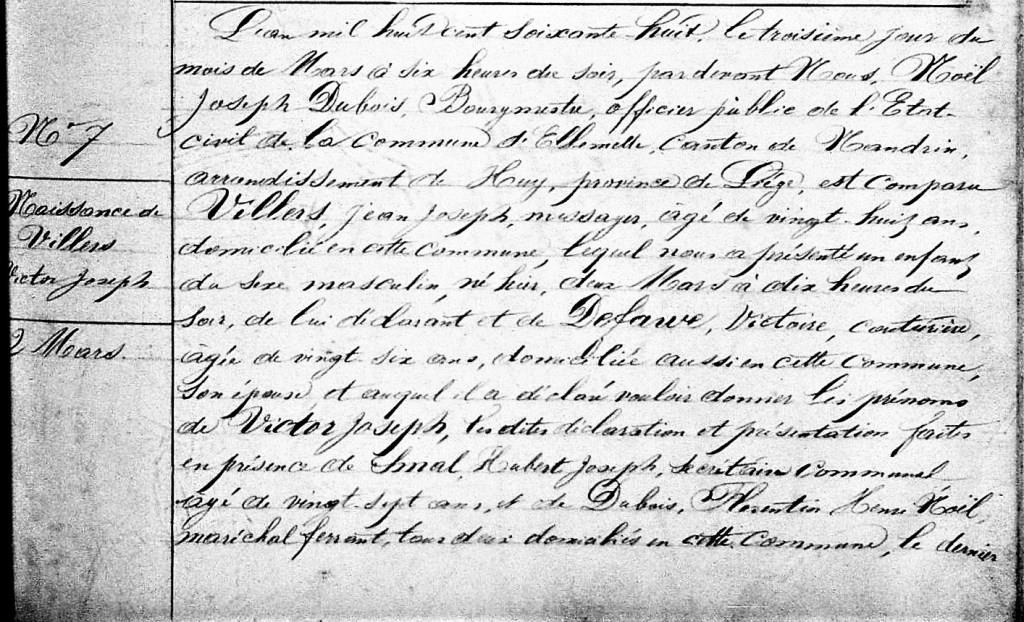 N° 7
Naissance de
Villers
Victor Joseph
2 Mars
L'an mil huit cent soixante-huit, le troisième jour du
mois de Mars à six heures du soir, pardevant Nous, Noël
Joseph Dubois, Bourgmestre, officier public de l'Etat-
civil de la commune d'Ellemelle, Canton de Nandrin,
arrondissement de Huy, province de Liége, est comparu
Villers, Jean Joseph, messager, âgé de vingt-huit ans,
domicilié en cette commune, lequel nous a présenté un enfant
du sexe masculin, né hier, deux Mars à dix heures du
soir, de lui déclarant et de Defawe, Victoire, couturière,
âgée de vingt six ans, domiciliée aussi en cette Commune,
son épouse et auquel il a déclaré vouloir donner les prénoms
de Victor Joseph, les dites déclaration et présentation faites
en présence de Smal, Hubert Joseph, secrétaire Communal
âgé de vingt-sept ans, et de Dubois, Florentin Henri Noël,
maréchal ferrant, tous deux domiciliés en cette Commune, le dernier